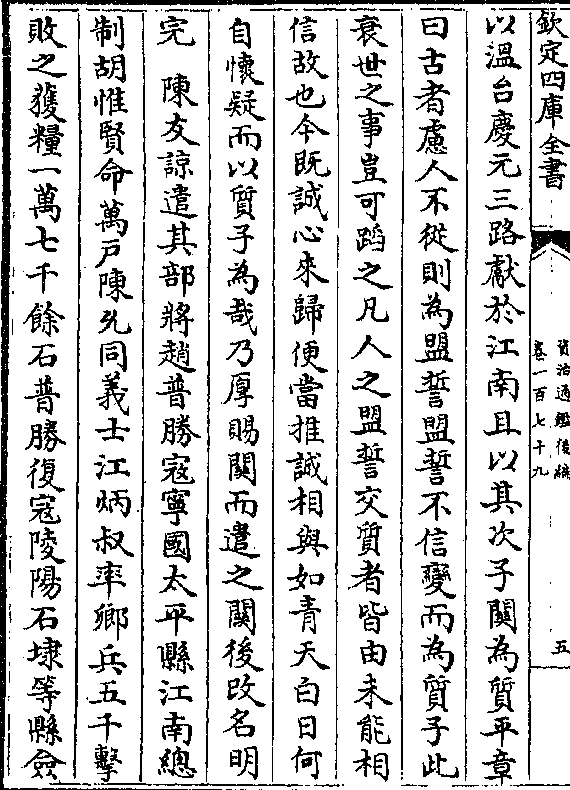 欽定四庫全書
資治通鑑後編
卷一百七十九
五
以溫台慶元三路獻於江南且以其次子關為質平章
曰古者慮人不從則為盟誓盟誓不信變而為質子此
衰世之事豈可蹈之凡人之盟誓交質者皆由未能相
信故也今既誠心來歸便當推誠相與如青天白日何
自懷疑而以質子為哉乃厚賜關而遣之關後改名明
完　陳友諒遣其部將趙普勝寇寧國太平縣江南總
制胡惟賢命萬戶陳允同義士江炳叔率鄉兵五千擊
敗之獲糧一萬七千餘石普勝復寇陵陽石埭等縣僉